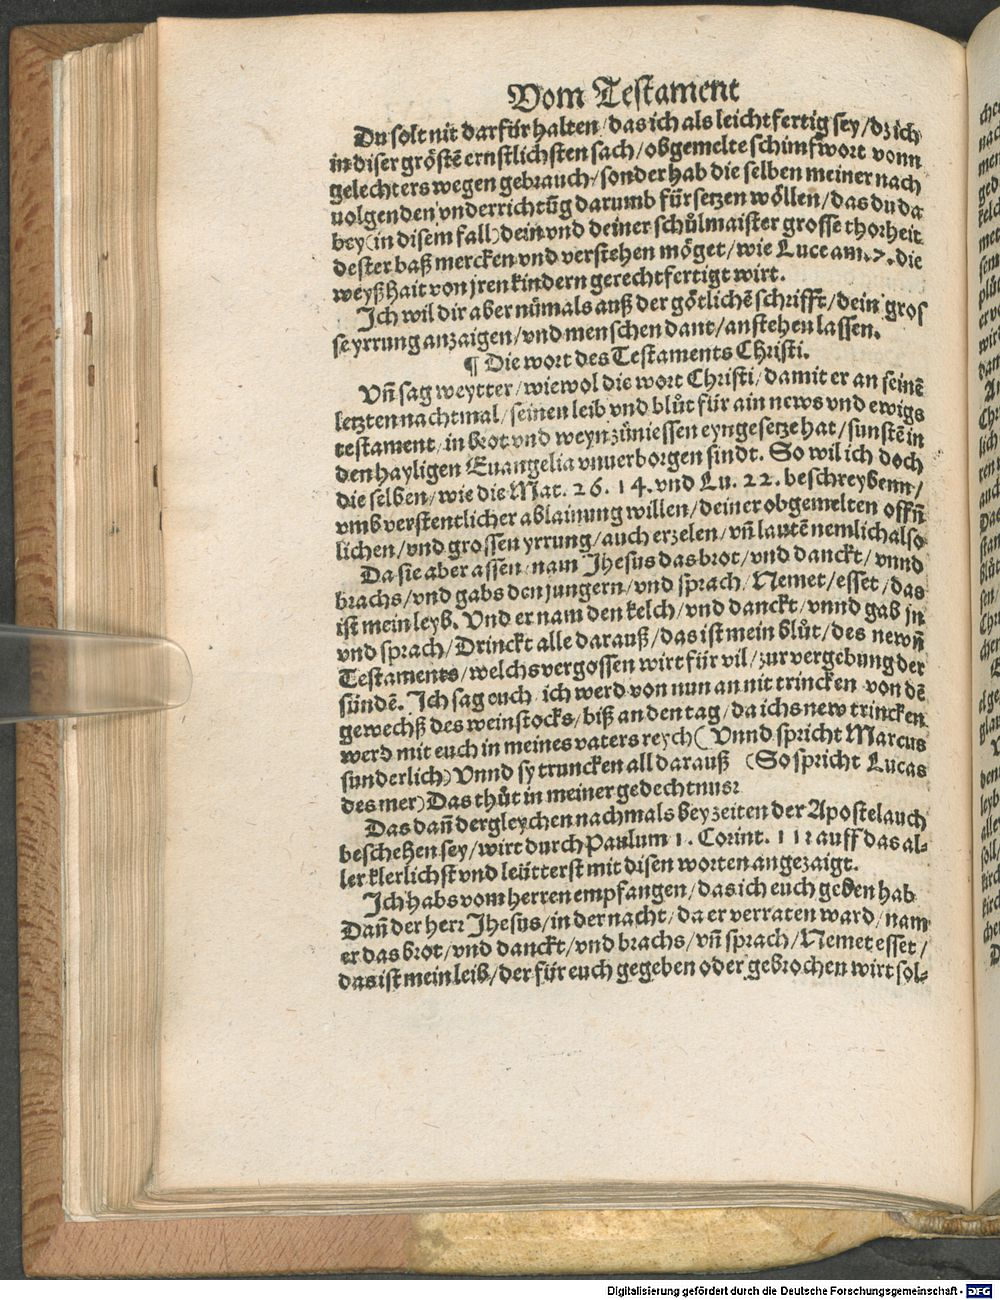 Vom Testament
Du solt nit darfür halten/das ich als leichtfertig sey/dz ich
in diser gröstē ernstlichsten sach/obgemelte schimfwort vonn
gelechters wegen gebrauch/sonder hab die selben meiner nach
uolgenden vnderrichtūg darumb fürsetzen wöllen/das du da
bey(in disem fall)dein vnd deiner schůlmaister grosse thorheit
dester baß mercken vnd verstehen möget/wie Luce am.7.die
weyßhait von jren kindern gerechtfertigt wirt.
Ich wil dir aber nůmals auß der götlichē schrifft/dein gros
se yrrung anzaigen/vnd menschen dant/anstehen lassen.
¶ Die wort des Testaments Christi.
Vñ sag weytter/wiewol die wort Christi/damit er an seinē
letzten nachtmal/seinen leib vnd blůt für ain news vnd ewigs
testament/in brot vnd weyn zůniessen eyngesetze hat/sunstē in
den hayligen Euangelia vnuerborgen sindt. So wil ich doch
die selben/wie die Mat. 26. 14. vnd Lu. 22. beschreybenn/
vmb verstentlicher ablainung willen/deiner obgemelten offñ
lichen/vnd grossen yrrung/auch erzelen/vñ lautē nemlich also
Da sie aber assen/nam Jhesus das brot/vnd danckt/vnnd
brachs/vnd gabs den jungern/vnd sprach/Nemet/esset/das
ist mein leyb. Vnd er nam den kelch/vnd danckt/vnnd gab jn
vnd sprach/Drinckt alle darauß/das ist mein blůt/des newñ
Testaments/welchs vergossen wirt für vil/zur vergebung der
sündē. Ich sag euch/ich werd von nun an nit trincken von dē
gewechß des weinstocks/biß an den tag/da ichs new trincken
werd mit euch in meines vaters reych(Vnnd spricht Marcus
sunderlich)Vnnd sy truncken all darauß (So spricht Lucas
des mer)Das thůt in meiner gedechtnus:
Das dañ dergleychen nachmals bey zeiten der Apostel auch
beschehen sey/wirt durch Paulum 1. Corint. 11: auff das al-
ler klerlichst vnd leütterst mit disen worten angezaigt.
Ich habs vom herren empfangen/das ich euch geben hab
Dañ der herr Jhesus/in der nacht/da er verraten ward/nam
er das brot/vnd danckt/vnd brachs/vñ sprach/Nemet esset/
das ist mein leib/der für euch gegeben oder gebrochen wirt sol-
Digitalisierung gefördert durch die Deutsche Forschungsgemeinschaft - DFG